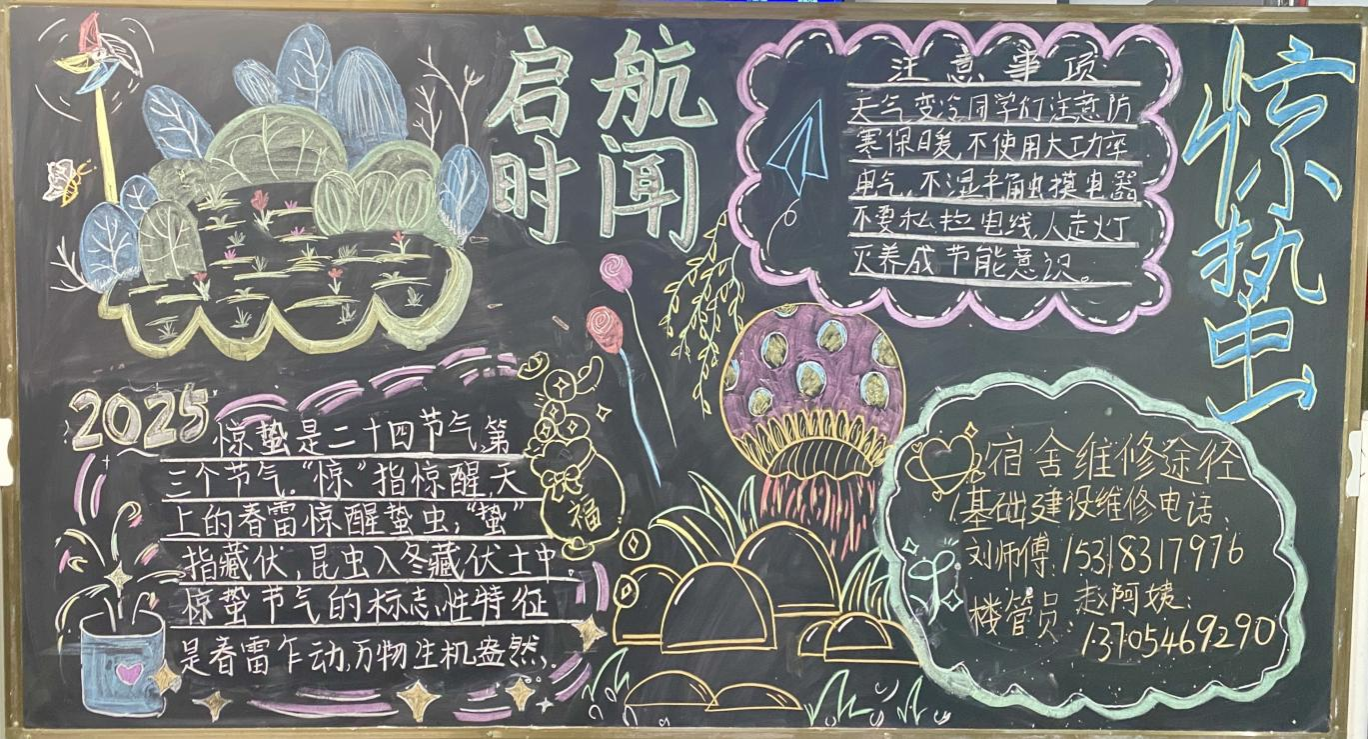 启航
时闻
惊蛰
注意事项
天气变冷同学们注意防
寒保暖,不使用大功率
电气,不湿手触摸电器
不要私拉电线,人走灯
灭养成节能意识。
2025
惊蛰是二十四节气第
三个节气."惊"指惊醒,天
上的春雷惊醒蛰虫;"蛰"
指藏伏,昆虫入冬藏伏土中.
惊蛰节气的标志性特征
是春雷乍动,万物生机盎然.
福
宿舍维修途径
基础建设维修电话.
刘师傅:15318317976
楼管员:赵阿姨:
13705469290